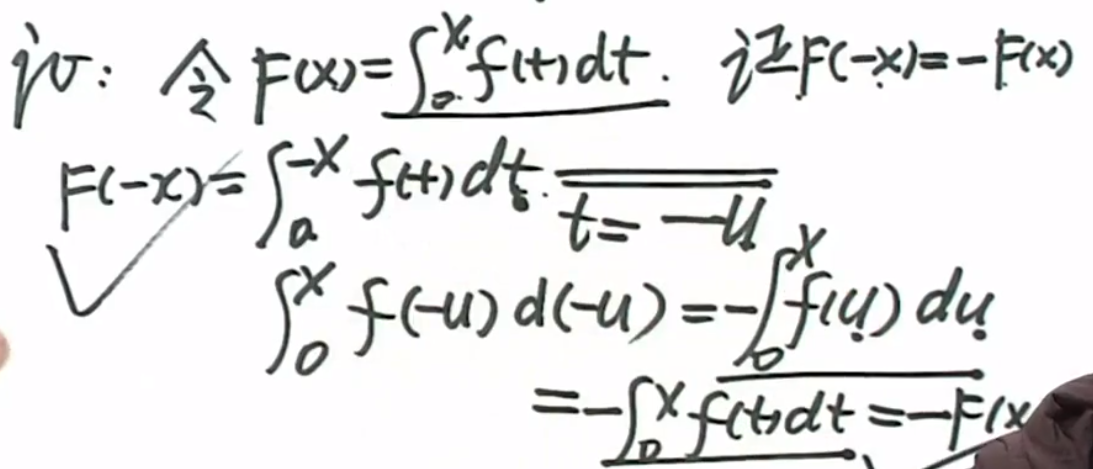 证: 令 F(x)=∫₀ˣ f(t)dt. 证F(-x)=-F(x)
F(-x)=∫ₐ^{-x} f(t)dt. ══ t=-u
∫₀ˣ f(-u)d(-u)=-∫₀ˣ f(u)du
=-∫₀ˣ f(t)dt=-F(x